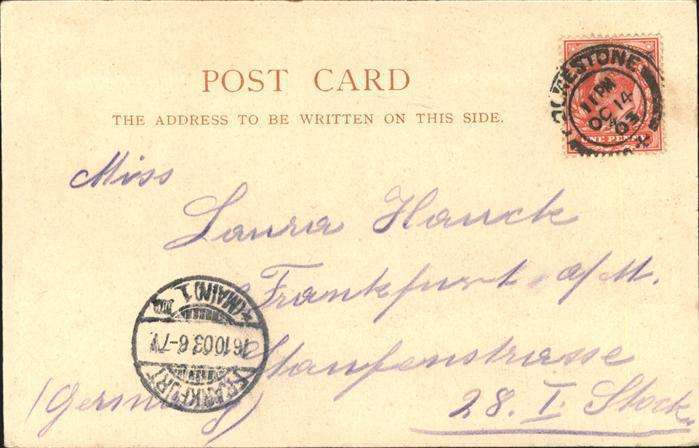 POST CARD
THE ADDRESS TO BE WRITTEN ON THIS SIDE.
FOLKESTONE
11 PM
OC 14
03
ONE PENNY
Miss
Laura Hauck
Frankfurt a/M.
Staufenstrasse
28. I. Stock
(Germany)
FRANKFURT
16.10.03. 6-7V.
*(MAIN) 1